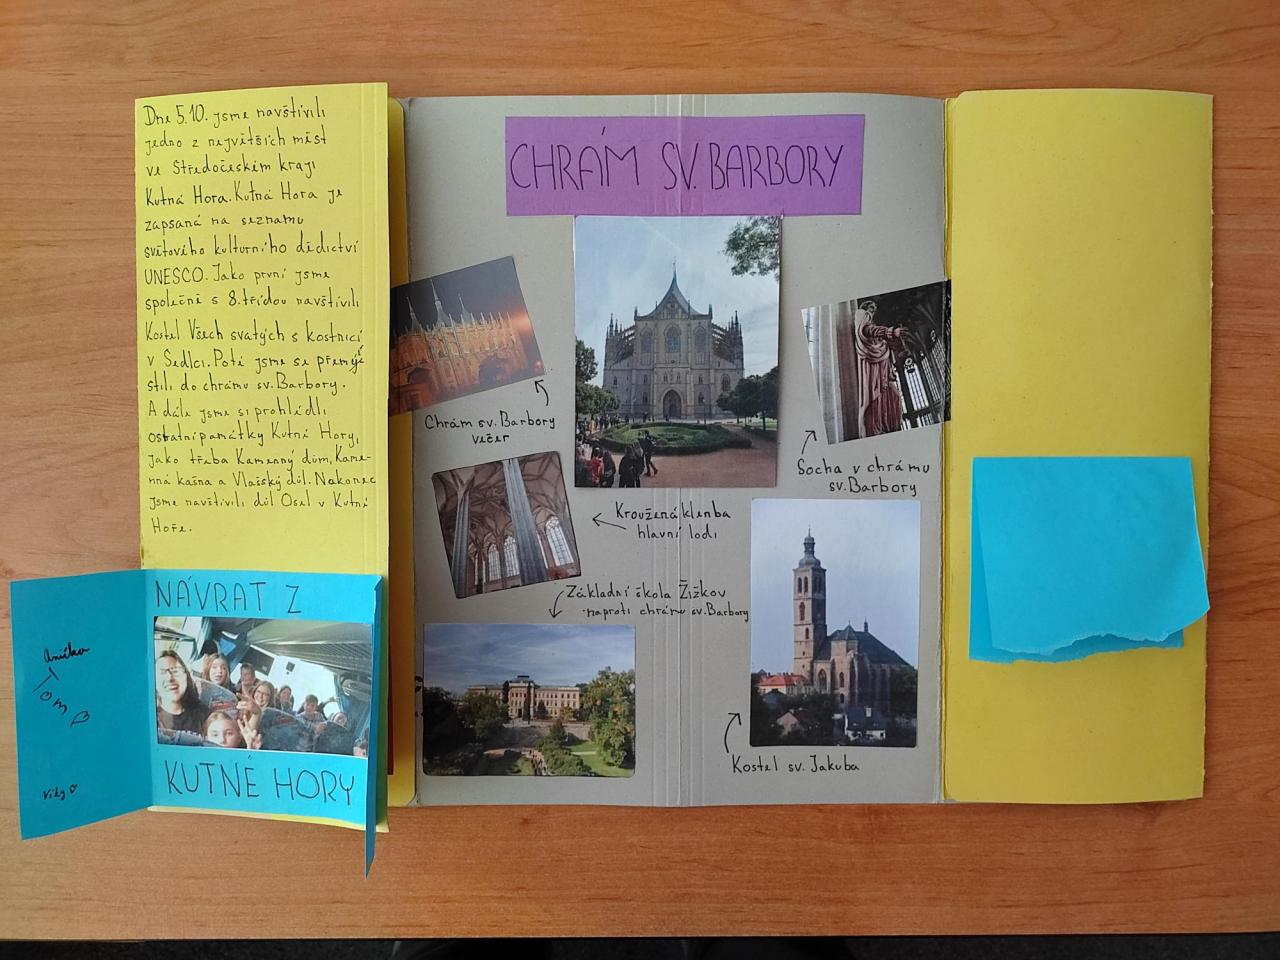 Dne 5.10. jsme navštívili
jedno z největších měst
ve Středočeském kraji
Kutná Hora. Kutná Hora je
zapsaná na seznamu
světového kulturního dědictví
UNESCO. Jako první jsme
společně s 8. třídou navštívili
Kostel Všech svatých s kostnicí
v Sedlci. Poté jsme se přemý
stili do chrámu sv. Barbory.
A dále jsme si prohlédli
ostatní památky Kutné Hory,
jako třeba Kamenný dům, Kame-
nná kašna a Vlašský důl. Nakonec
jsme navštívili důl Osel v Kutné
Hoře.
NÁVRAT Z
KUTNÉ HORY
Anička
Tom
Viky
CHRÁM SV. BARBORY
Chrám sv. Barbory
večer
Socha v chrámu
sv. Barbory
Kroužená klenba
hlavní lodi
Základní škola Žižkov
naproti chrámu sv. Barbory
Kostel sv. Jakuba